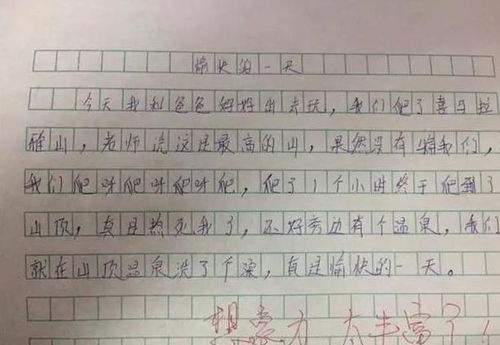 愉快的一天
今天我和爸爸妈妈出去玩，我们爬了喜马拉
雅山，老师说这是最高的山，果然没有骗我们，
我们爬呀爬呀爬呀爬，爬了1个小时终于爬到了
山顶，真是热死我了，还好旁边有个温泉，我们
就在山顶温泉洗了个澡，真是愉快的一天。
想象力太丰富了